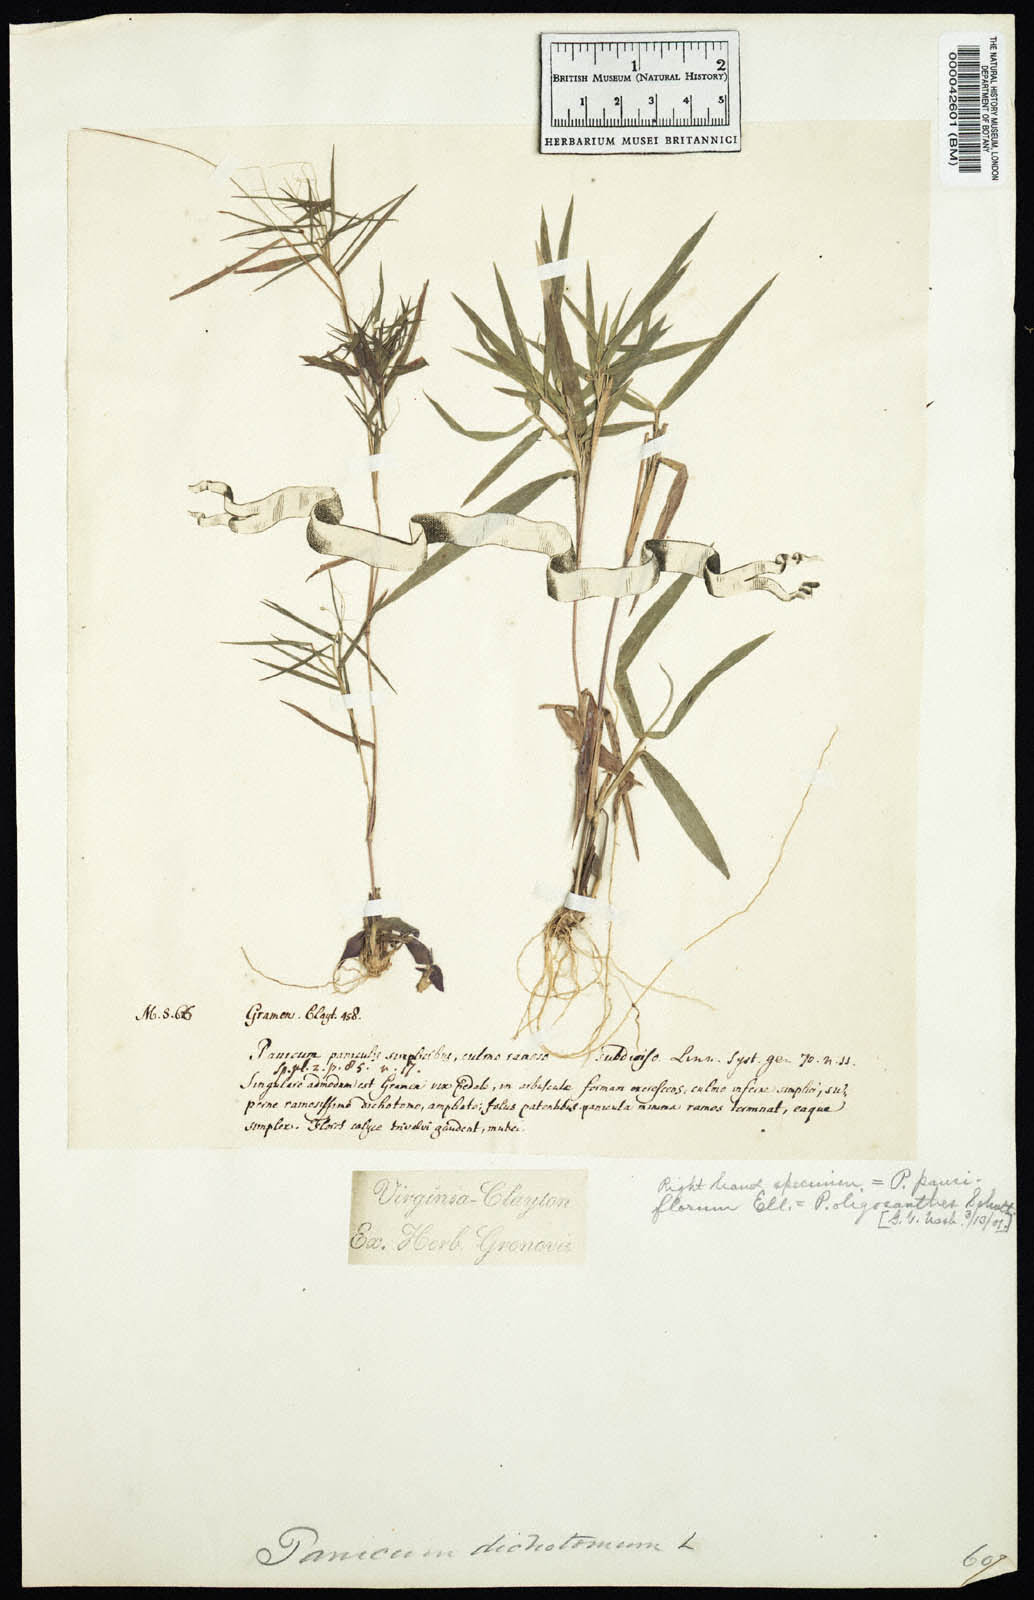 1 2
BRITISH MUSEUM (NATURAL HISTORY)
1 2 3 4 5
HERBARIUM MUSEI BRITANNICI
THE NATURAL HISTORY MUSEUM, LONDON
DEPARTMENT OF BOTANY
000042601 (BM)
Gramen. Clayt. 458.
Panicum paniculis simplicibus, culmo ramoso subdiviso. Linn. Syst. gen. 70. n. 11.
Sp. pl. 2. p. 85. n. 17.
Singulare admodum est Gramen vix pedale, in arbusculae formam excrescens, culmo inferne simplici, su-
perne ramosissimo dichotomo, ampliato; foliis patentibus: panicula minima ramos terminat, eaque
simplex. Flores calyce trivalvi gaudent, mutici.
Virginia-Clayton
Ex. Herb. Gronovii
Right hand specimen = P. pauci-
florum Ell. = P. oligosanthes Schult.
[G. V. Nash. 3/10/01.]
Panicum dichotomum L
607